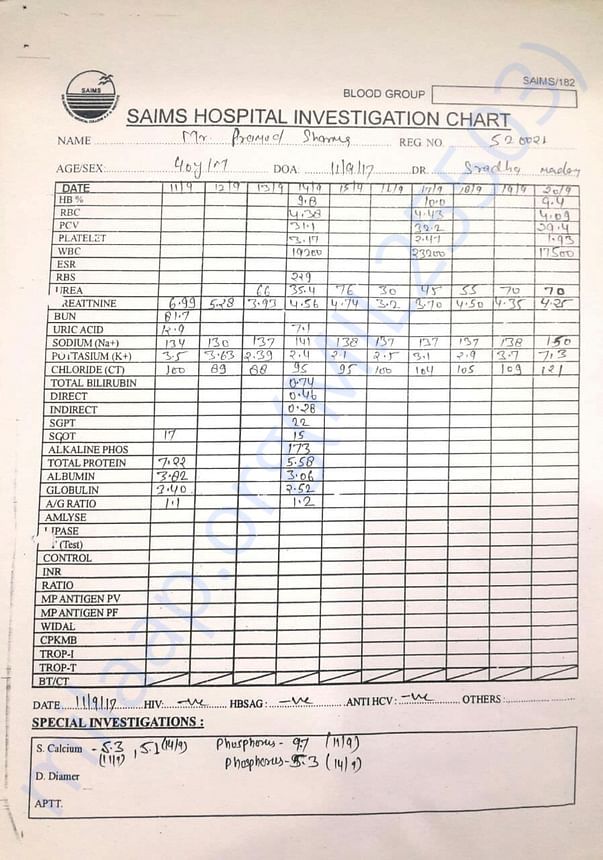 SAIMS/182
BLOOD GROUP
SAIMS
SAIMS HOSPITAL INVESTIGATION CHART
NAME Mr. Pramod Sharma REG NO. 520021
AGE/SEX: 40y/M DOA: 11/9/17 DR. Sradha
DATE 11/9 12/9 13/9 14/9 15/9 16/9 17/9 18/9 19/9 20/9
HB % 9.8 10.0 9.4
RBC 4.38 4.43 4.09
PCV 31.1 32.2 29.4
PLATELET 3.17 2.47 1.93
WBC 19200 23200 17500
ESR
RBS 229
UREA 66 35.4 76 30 45 55 70 70
REATTNINE 6.99 5.28 3.93 4.56 4.74 3.2 3.70 4.50 4.35 4.25
BUN 81.7
URIC ACID 12.9 7.1
SODIUM (Na+) 134 130 137 141 138 137 137 137 138 150
POTTASIUM (K+) 3.5 3.63 2.39 2.4 2.1 2.5 3.1 2.9 3.7 7.3
CHLORIDE (CT) 100 89 88 95 95 100 104 105 109 121
TOTAL BILIRUBIN 0.74
DIRECT 0.46
INDIRECT 0.28
SGPT 22
SGOT 17 15
ALKALINE PHOS 173
TOTAL PROTEIN 7.22 5.58
ALBUMIN 3.82 3.06
GLOBULIN 3.40 2.52
A/G RATIO 1.1 1.2
AMLYSE
LIPASE
(Test)
CONTROL
INR
RATIO
MP ANTIGEN PV
MP ANTIGEN PF
WIDAL
CPKMB
TROP-I
TROP-T
BT/CT
DATE 11/9/17 HIV: -ve HBSAG: -ve ANTI HCV: -ve OTHERS:
SPECIAL INVESTIGATIONS :
S. Calcium - 5.3 (11/9), 5.1 (14/9) Phosphorus - 9.7 (11/9)
Phosphorus - 5.3 (14/9)
D. Diamer
APTT.